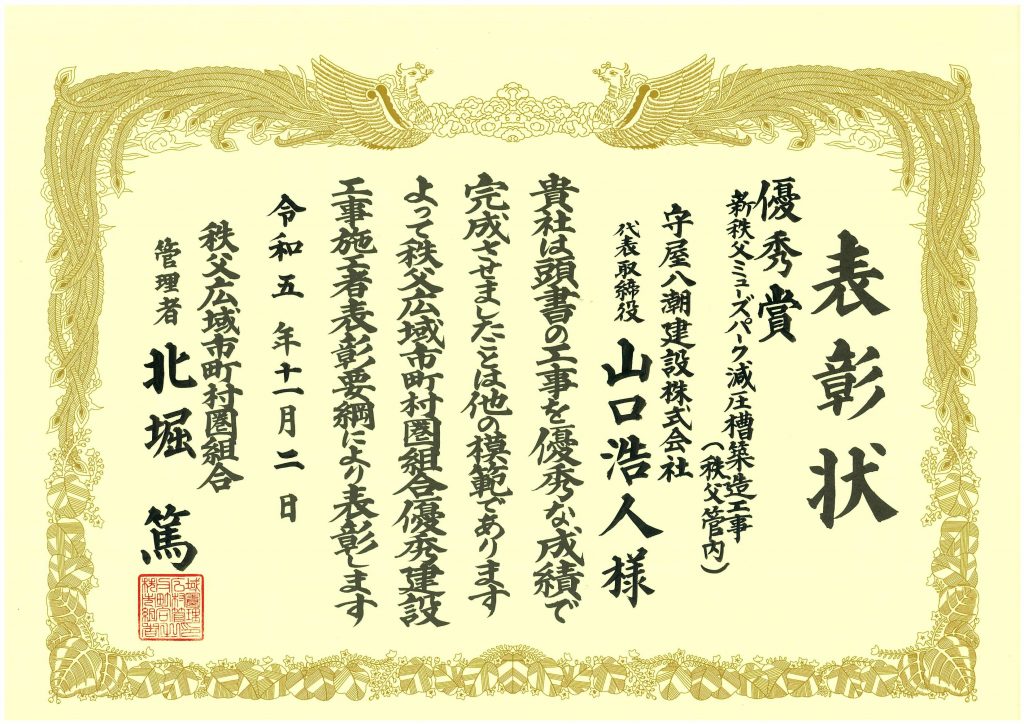 表彰状
優秀賞
新秩父ミューズパーク減圧槽築造工事
（秩父管内）
守屋八潮建設株式会社
代表取締役 山口浩人様
貴社は頭書の工事を優秀な成績で
完成させましたことは他の模範であります
よって秩父広域市町村圏組合優秀建設
工事施工者表彰要綱により表彰します
令和五年十一月二日
秩父広域市町村圏組合
管理者 北堀 篤